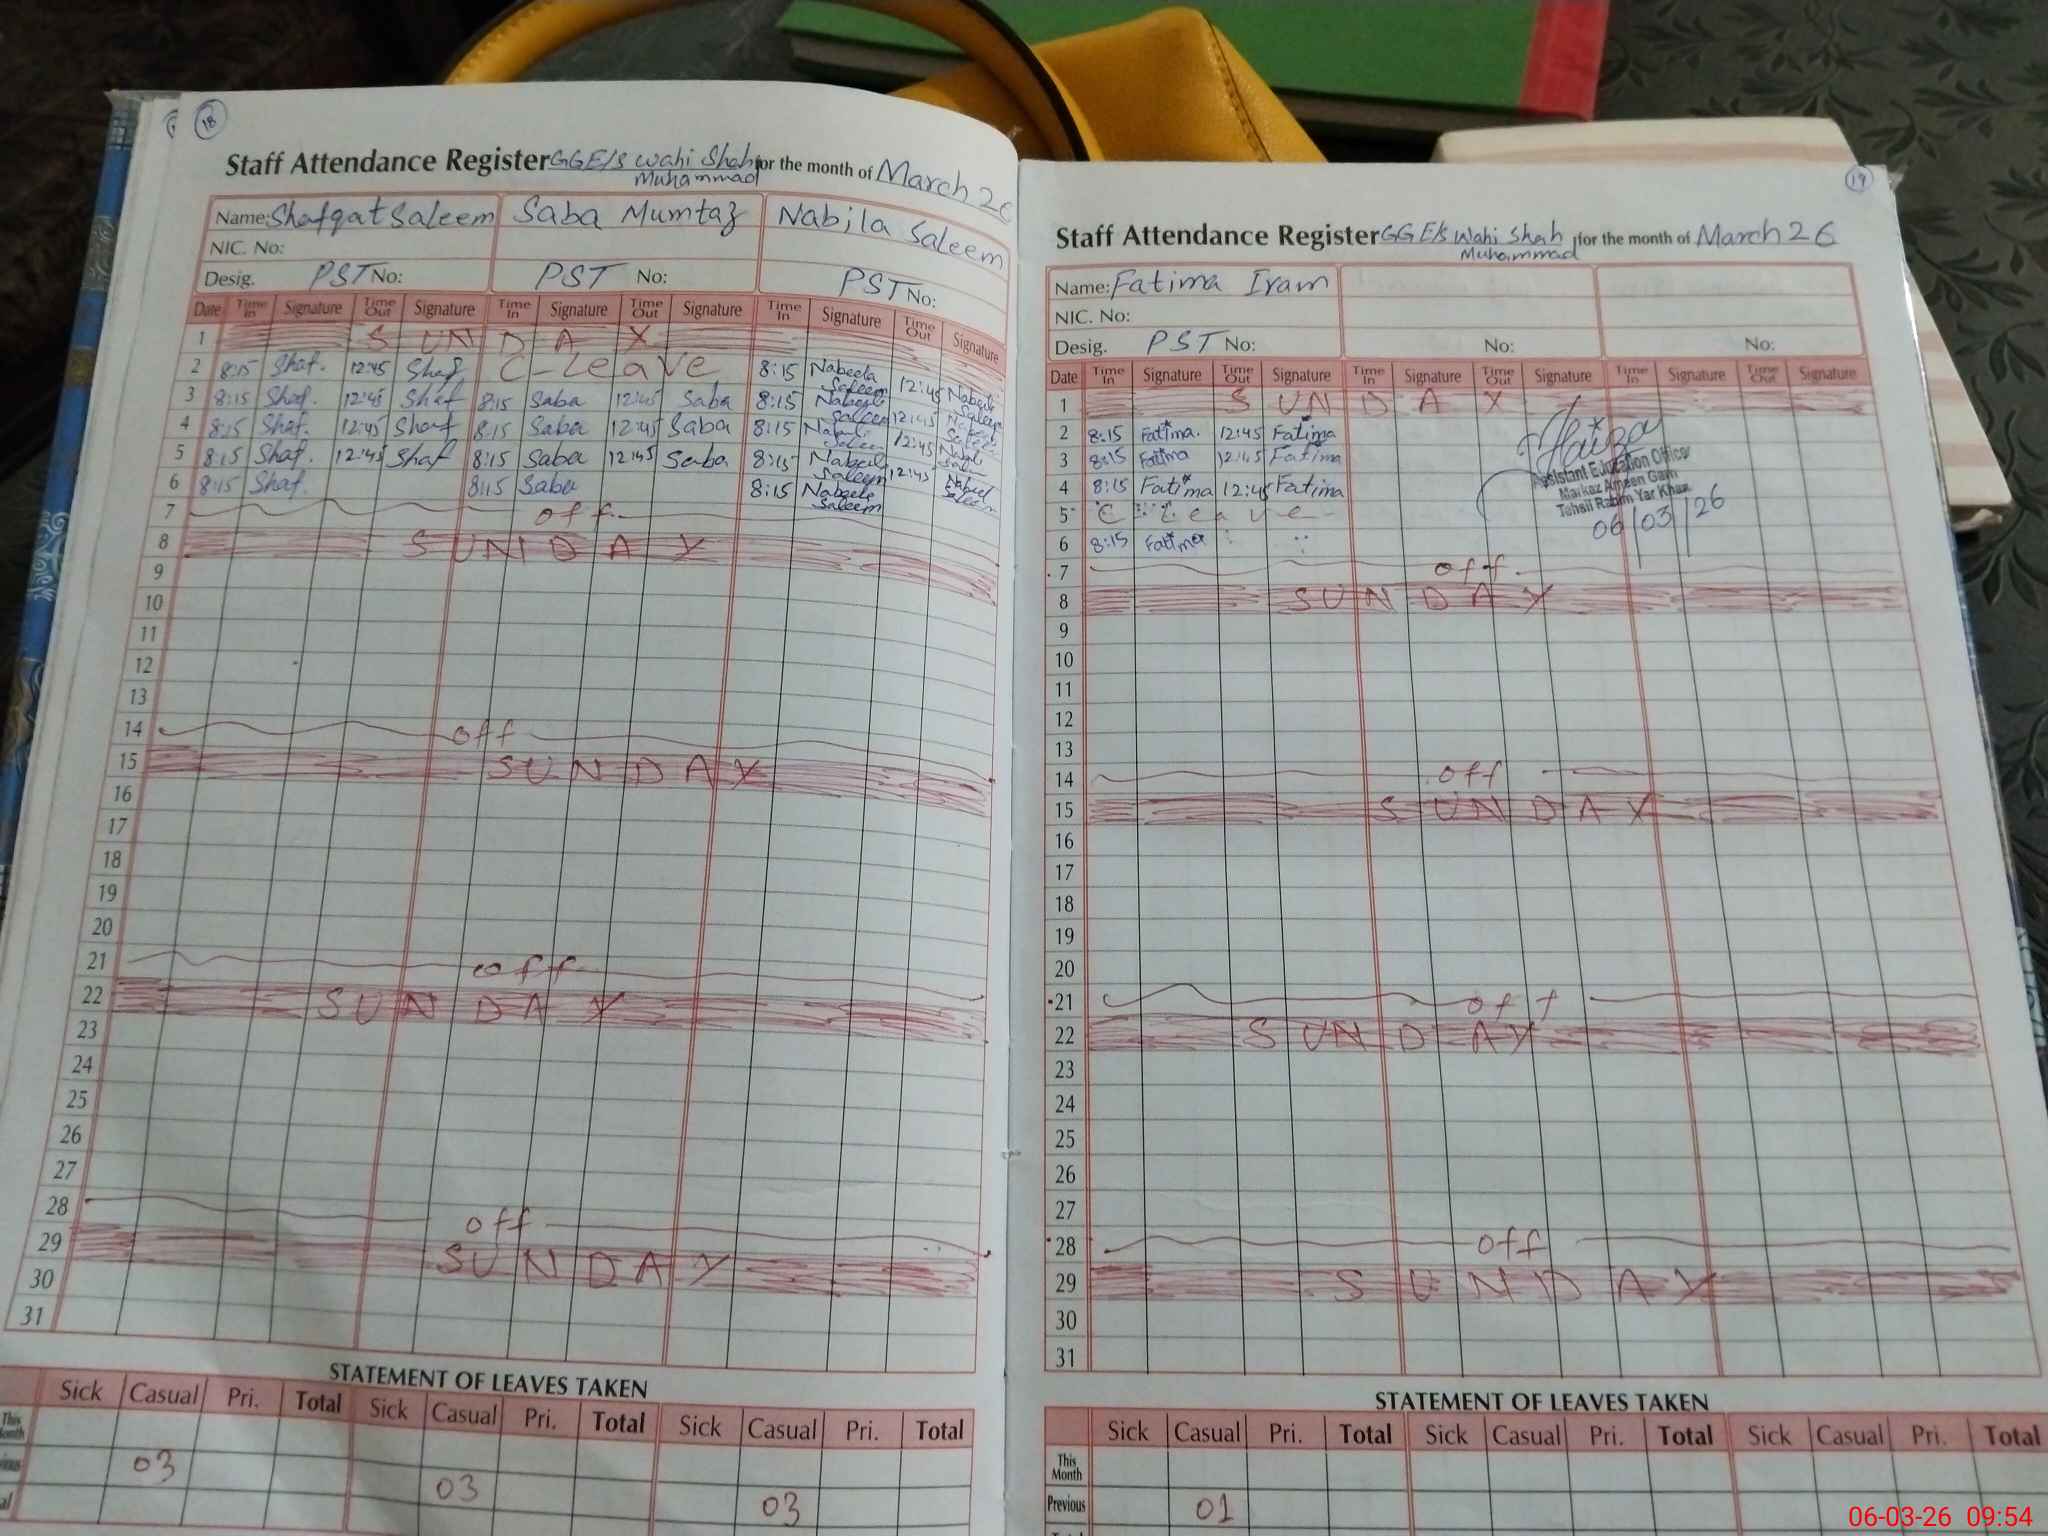 18
Staff Attendance Register GGE/S Wahi Shah Muhammad for the month of March 26
Name: Shafqat Saleem Saba Mumtaz Nabila Saleem
NIC. No:
Desig. PST No: PST No: PST No:
Date Time In Signature Time Out Signature Time In Signature Time Out Signature Time In Signature Time Out Signature
1 SUNDAY
2 8:15 Shaf. 12:45 Shaf C-Leave 8:15 Nabeela Saleem 12:45 Nabeela Saleem
3 8:15 Shaf. 12:45 Shaf 8:15 Saba 12:45 Saba 8:15 Nabeela Saleem 12:45 Nabeela Saleem
4 8:15 Shaf. 12:45 Shaf 8:15 Saba 12:45 Saba 8:15 Saleem 12:45
5 8:15 Shaf. 12:45 Shaf 8:15 Saba 12:45 Saba 8:15 Nabeela Saleem 12:45 Nabeel Saleem
6 8:15 Shaf. 8:15 Saba 8:15 Nabeela Saleem
7 off
8 SUNDAY
9
10
11
12
13
14 off
15 SUNDAY
16
17
18
19
20
21 off
22 SUNDAY
23
24
25
26
27
28 off
29 SUNDAY
30
31
STATEMENT OF LEAVES TAKEN
Sick Casual Pri. Total Sick Casual Pri. Total Sick Casual Pri. Total
This
03 03 03
19
Staff Attendance Register GGE/S Wahi Shah Muhammad for the month of March 26
Name: Fatima Iram
NIC. No:
Desig. PST No: No: No:
Date Time In Signature Time Out Signature Time In Signature Time Out Signature Time In Signature Time Out Signature
1 SUNDAY
2 8:15 Fatima. 12:45 Fatima
3 8:15 Fatima 12:45 Fatima
4 8:15 Fatima 12:45 Fatima
5 C Leave
6 8:15 Fatima
Assistant Education Officer
Markaz Ameen Garh
Tehsil Rahim Yar Khan
06/03/26
7 off
8 SUNDAY
9
10
11
12
13
14 off
15 SUNDAY
16
17
18
19
20
21 off
22 SUNDAY
23
24
25
26
27
28 off
29 SUNDAY
30
31
STATEMENT OF LEAVES TAKEN
Sick Casual Pri. Total Sick Casual Pri. Total Sick Casual Pri. Total
This Month
Previous 01
06-03-26 09:54